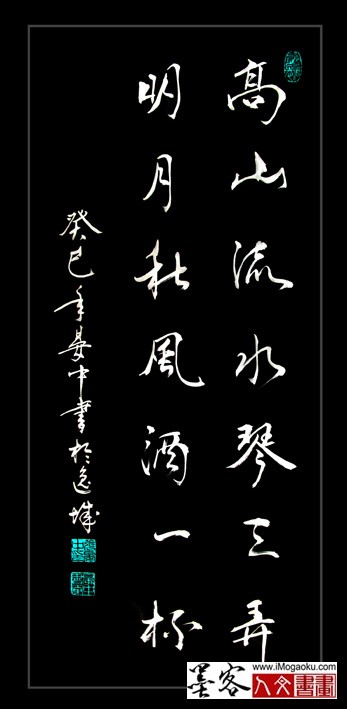 高山流水琴三弄
明月秋风酒一杯
癸巳年晏中書於逸城
墨客
www.iMogaoku.com
人文書畫